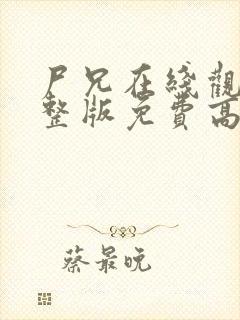 尸兄在綫觀
整版免費高
蔡最晩